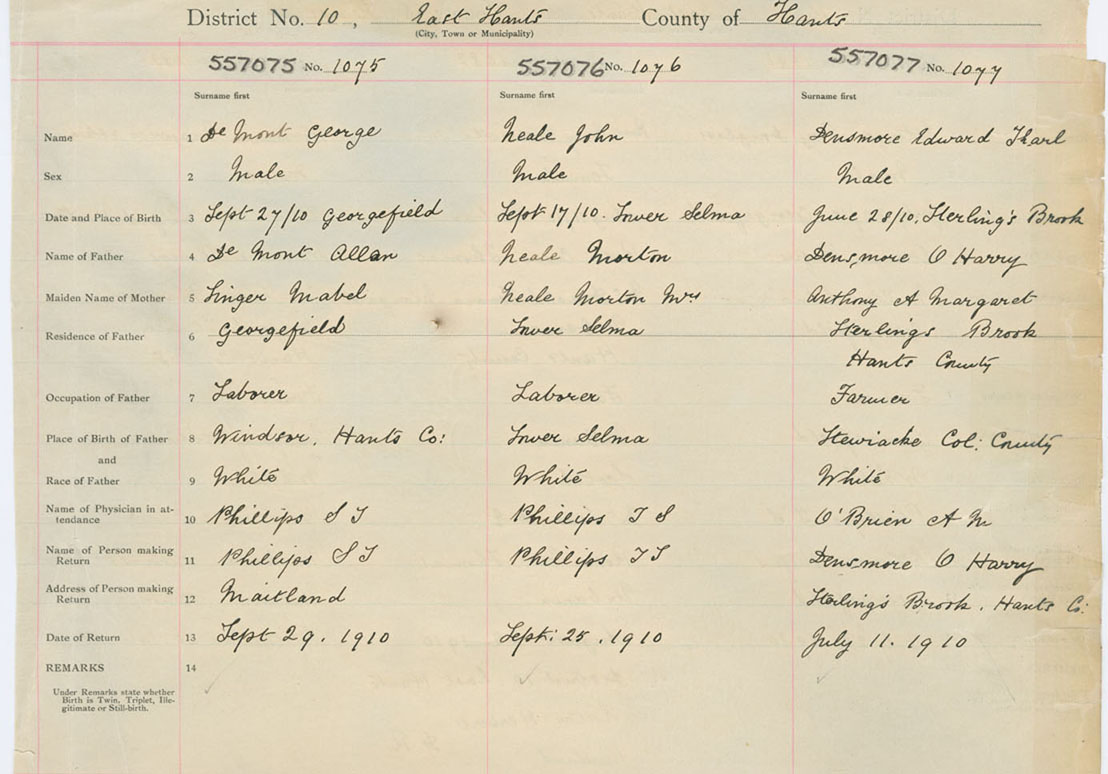 District No. 10, East Hants County of Hants
(City, Town or Municipality)
557075 No. 1075 557076 No. 1076 557077 No. 1077
Surname first Surname first Surname first
Name 1 De Mont George Neale John Densmore Edward Karl
Sex 2 Male Male Male
Date and Place of Birth 3 Sept 27/10 Georgefield Sept 17/10. Lower Selma June 28/10, Sterling's Brook
Name of Father 4 De Mont Allan Neale Morton Densmore O Harry
Maiden Name of Mother 5 Singer Mabel Neale Morton Mrs Anthony A Margaret
Residence of Father 6 Georgefield Lower Selma Sterling's Brook
Hants County
Occupation of Father 7 Laborer Laborer Farmer
Place of Birth of Father 8 Windsor, Hants Co: Lower Selma Stewiacke Col: County
and
Race of Father 9 White White White
Name of Physician in at-
tendance 10 Phillips S T Phillips T S O'Brien A M
Name of Person making
Return 11 Phillips S T Phillips T S Densmore O Harry
Address of Person making
Return 12 Maitland Sterling's Brook, Hants Co:
Date of Return 13 Sept 29, 1910 Sept: 25, 1910 July 11. 1910
REMARKS 14
Under Remarks state whether
Birth is Twin, Triplet, Ille-
gitimate or Still-birth.